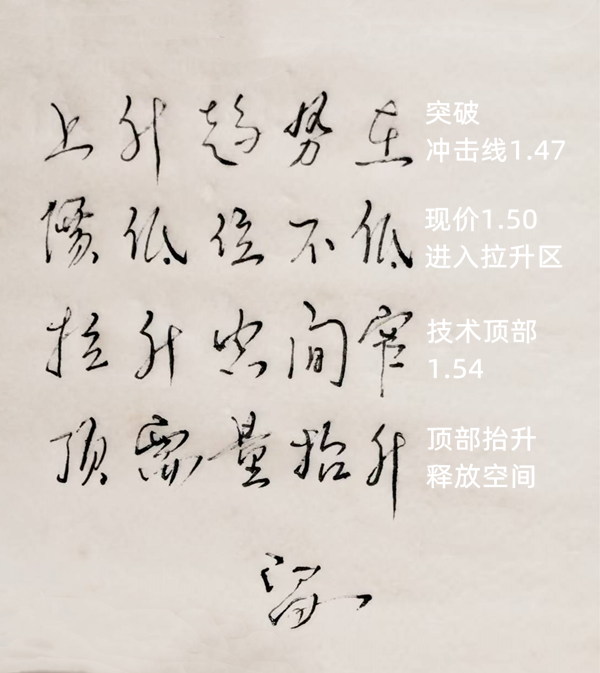 上升趋势在
突破
冲击线1.47
低位不低
现价1.50
进入拉升区
拉升空间窄
技术顶部
1.54
顶 量抬升
顶部抬升
释放空间
留